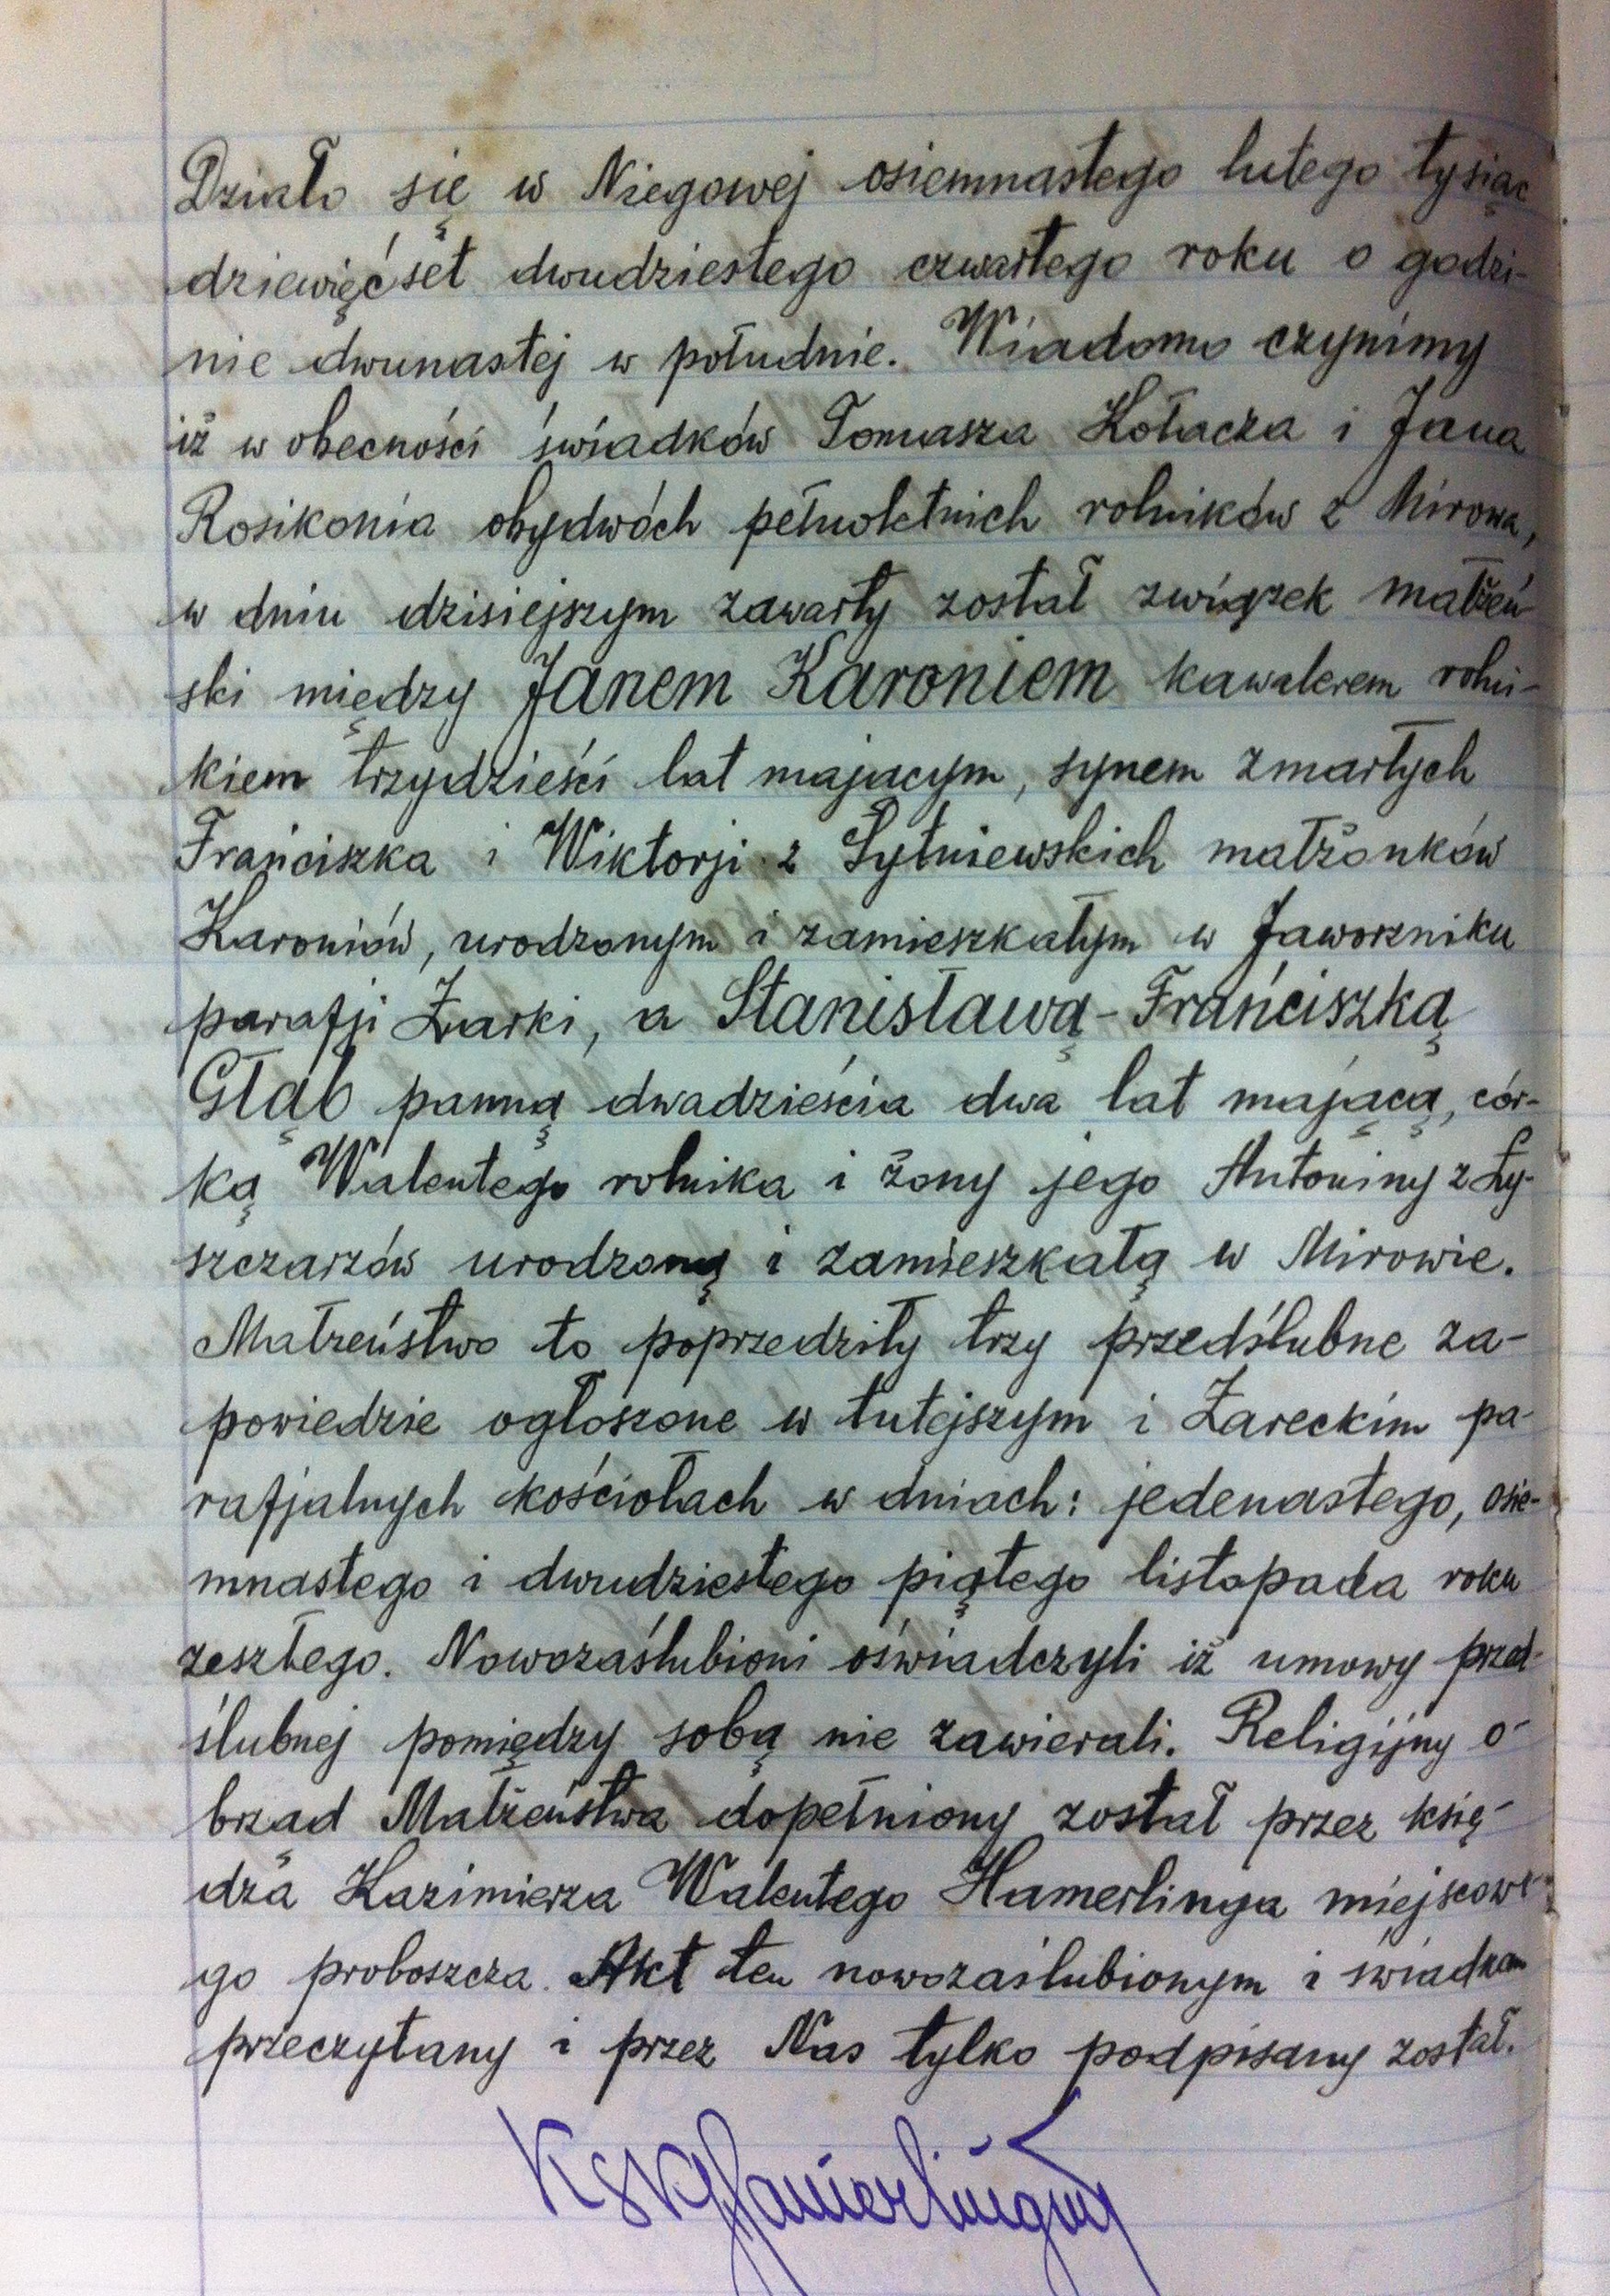 Działo się w Niegowej osiemnastego lutego tysiąc
dziewięćset dwudziestego czwartego roku o godzi-
nie dwunastej w południe. Wiadomo czynimy
iż w obecności świadków Tomasza Kołacza i Jana
Rosikonia obydwóch pełnoletnich rolników z Mirowa,
w dniu dzisiejszym zawarty został związek małżeń-
ski między Janem Karoniem kawalerem rolni-
kiem trzydzieści lat mającym, synem zmarłych
Franciszka i Wiktorji z Sytniewskich małżonków
Karoniów, urodzonym i zamieszkałym w Jaworzniku
parafji Żarki, a Stanisławą-Franciszką
Głąb panną dwadzieścia dwa lat mającą, cór-
ką Walentego rolnika i żony jego Antoniny z Ły-
szczarzów urodzoną i zamieszkałą w Mirowie.
Małżeństwo to poprzedziły trzy przedślubne za-
powiedzie ogłoszone w tutejszym i Żareckim pa-
rafjalnych kościołach w dniach: jedenastego, osie-
mnastego i dwudziestego piątego listopada roku
zeszłego. Nowozaślubieni oświadczyli iż umowy przed-
ślubnej pomiędzy sobą nie zawierali. Religijny o-
brząd Małżeństwa dopełniony został przez księ-
dza Kazimierza Walentego Hamerlinga miejscowe-
go proboszcza. Akt ten nowozaślubionym i świadkom
przeczytany i przez Nas tylko podpisany został.
Ks K Hamerling